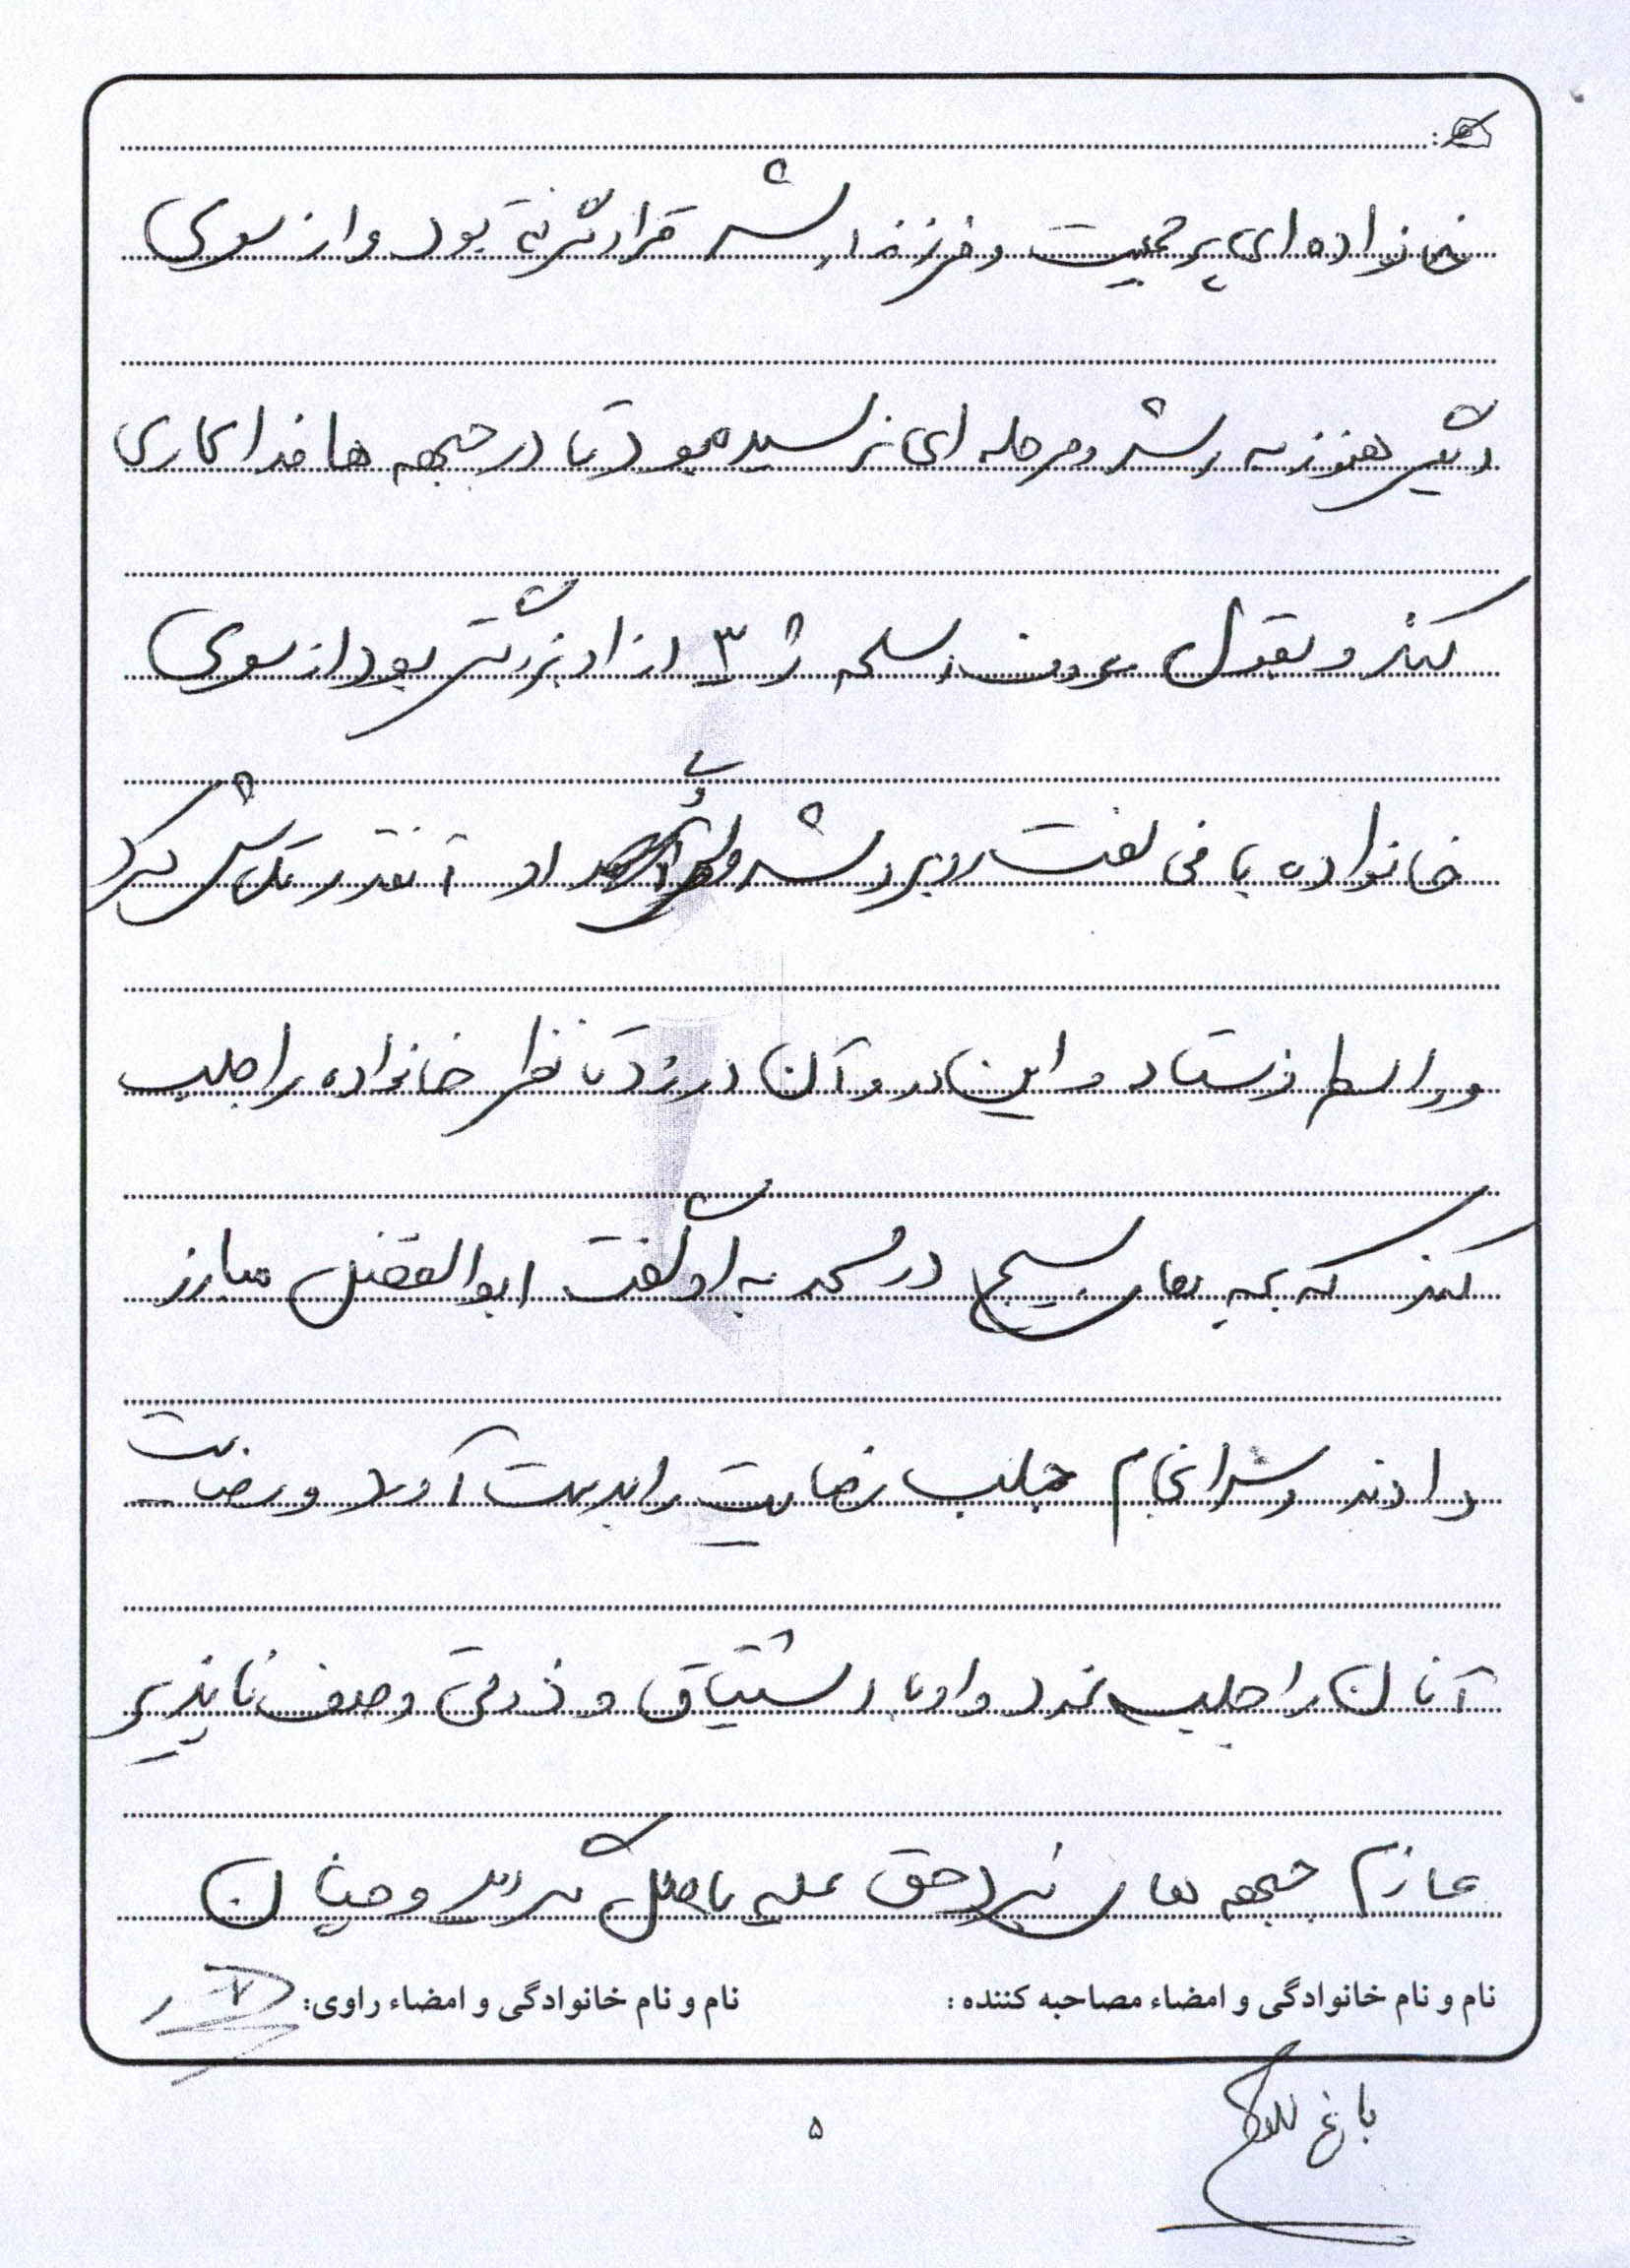 خانواده ای پرجمعیت و فرزند ارشد قرار گرفته بود و از سوی
دیگر هنوز به رشد و مرحله ای نرسیده بود تا در جبهه ها فداکاری
کند و بقول معروف اسلحه ژ ۳ از او بزرگتر بود از سوی
خانواده با مخالفت روبرو شد ولی او آنقدر تلاش کرد
و واسطه فرستاد و این در و آن در زد تا نظر خانواده را جلب
کند که بچه های بسیج در مسجد به او گفت ابوالفضل مبارز
دادند و سرانجام جلب رضایت را بدست آورد و رضایت
آنان را جلب نمود و او با اشتیاق و ذوقی وصف ناپذیر
عازم جبهه های نبرد حق علیه باطل گردید و چنان
نام و نام خانوادگی و امضاء مصاحبه کننده :
نام و نام خانوادگی و امضاء راوی:
۵